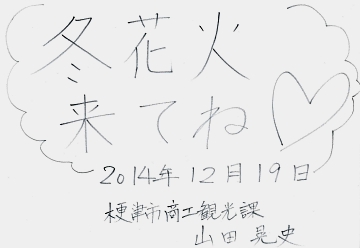 冬花火
来てね♡
2014年12月19日
梗津市商工観光課
山田晃史